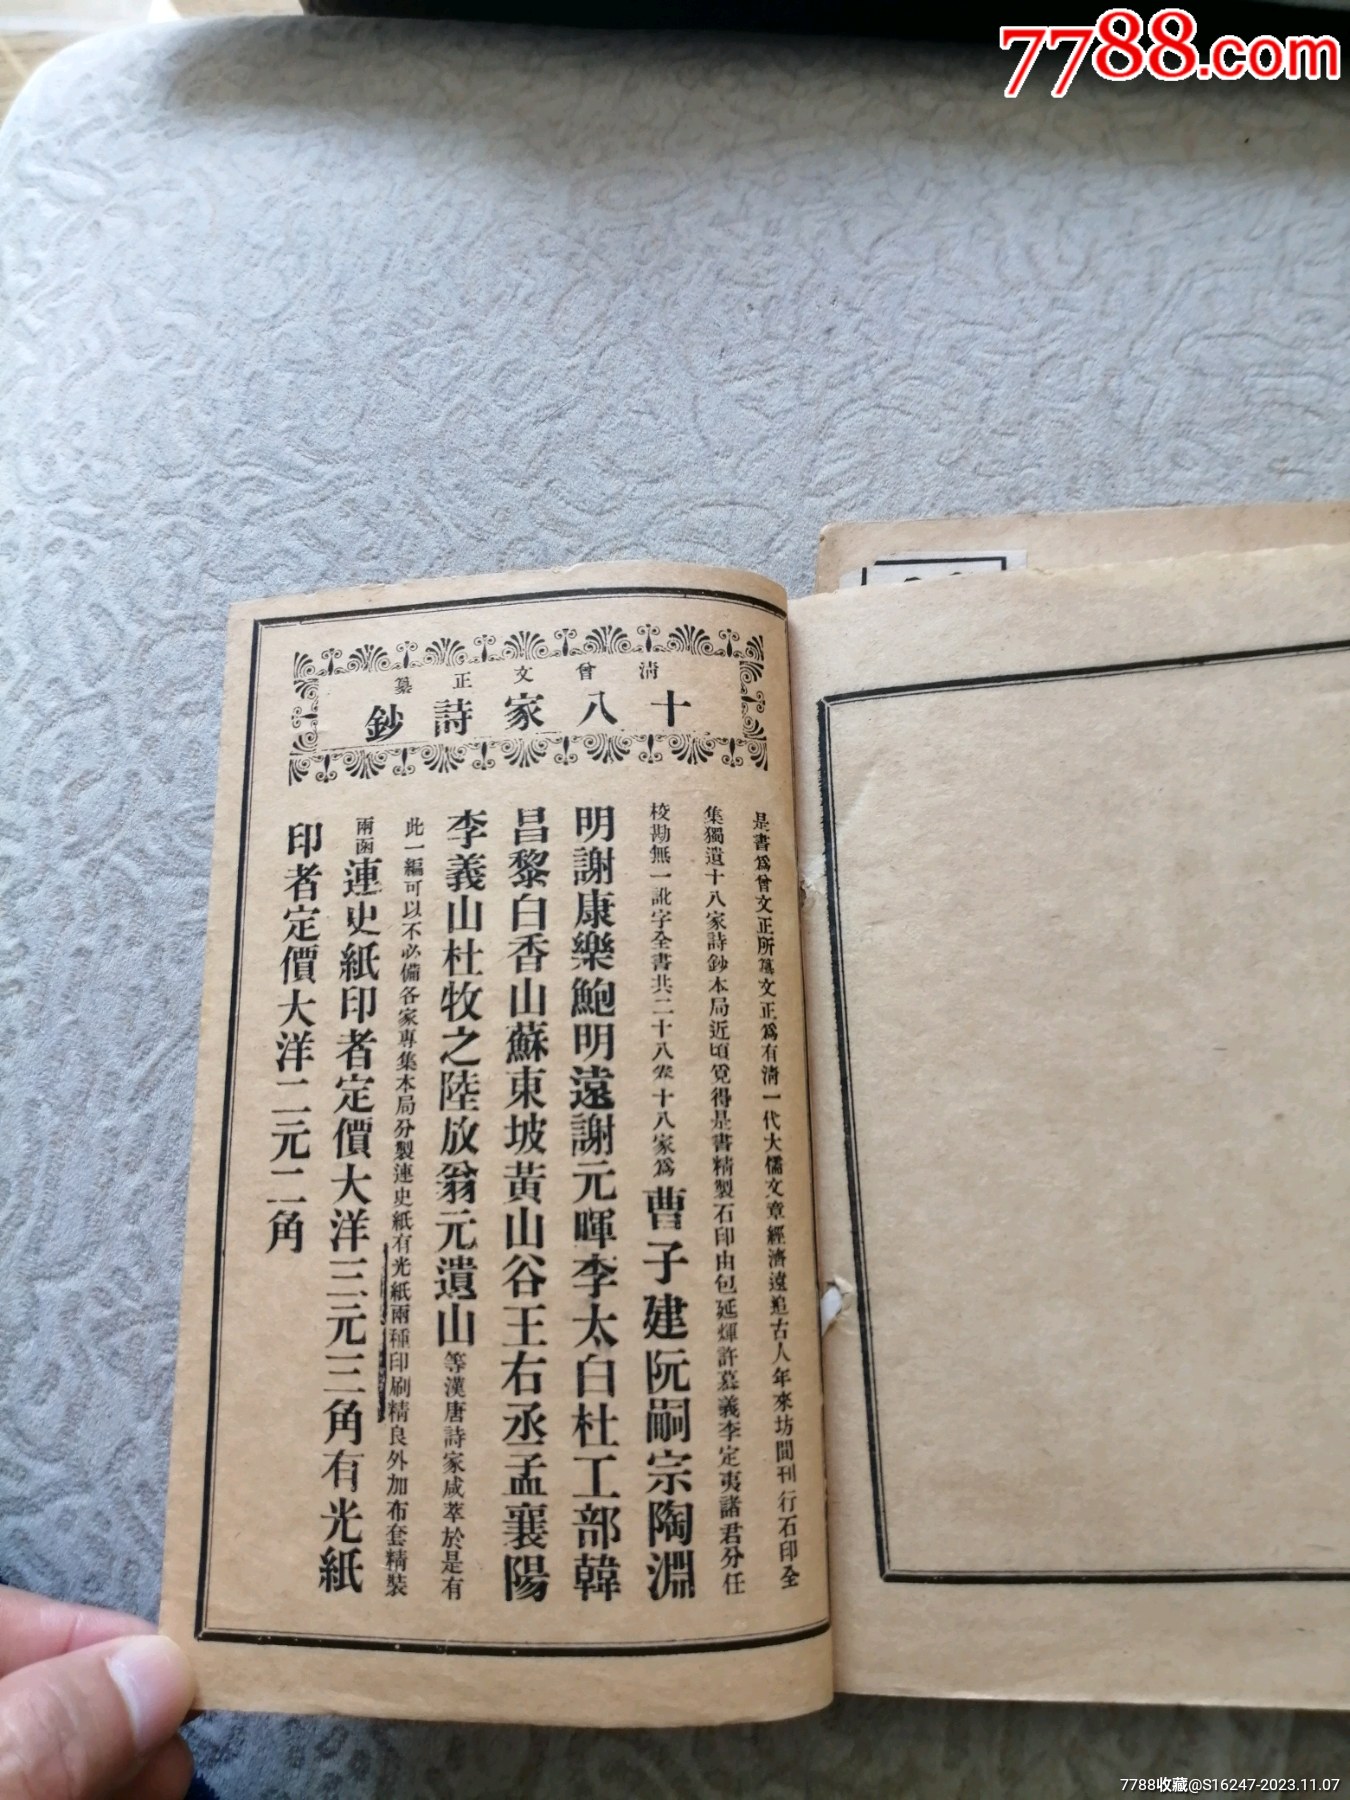 7788.com
清曾文正纂
十八家詩鈔
是書爲曾文正所纂文正爲有清一代大儒文章經濟遠追古人年來坊間刊行石印全
集獨遺十八家詩鈔本局近頃覓得是書精製石印由包延輝許慕義李定夷諸君分任
校勘無一訛字全書共二十八卷十八家爲曹子建阮嗣宗陶淵
明謝康樂鮑明遠謝元暉李太白杜工部韓
昌黎白香山蘇東坡黃山谷王右丞孟襄陽
李義山杜牧之陸放翁元遺山等漢唐詩家咸萃於是有
此一編可以不必備各家專集本局分製連史紙有光紙兩種印刷精良外加布套精裝
兩函連史紙印者定價大洋三元三角有光紙
印者定價大洋二元二角
7788收藏@S16247-2023.11.07